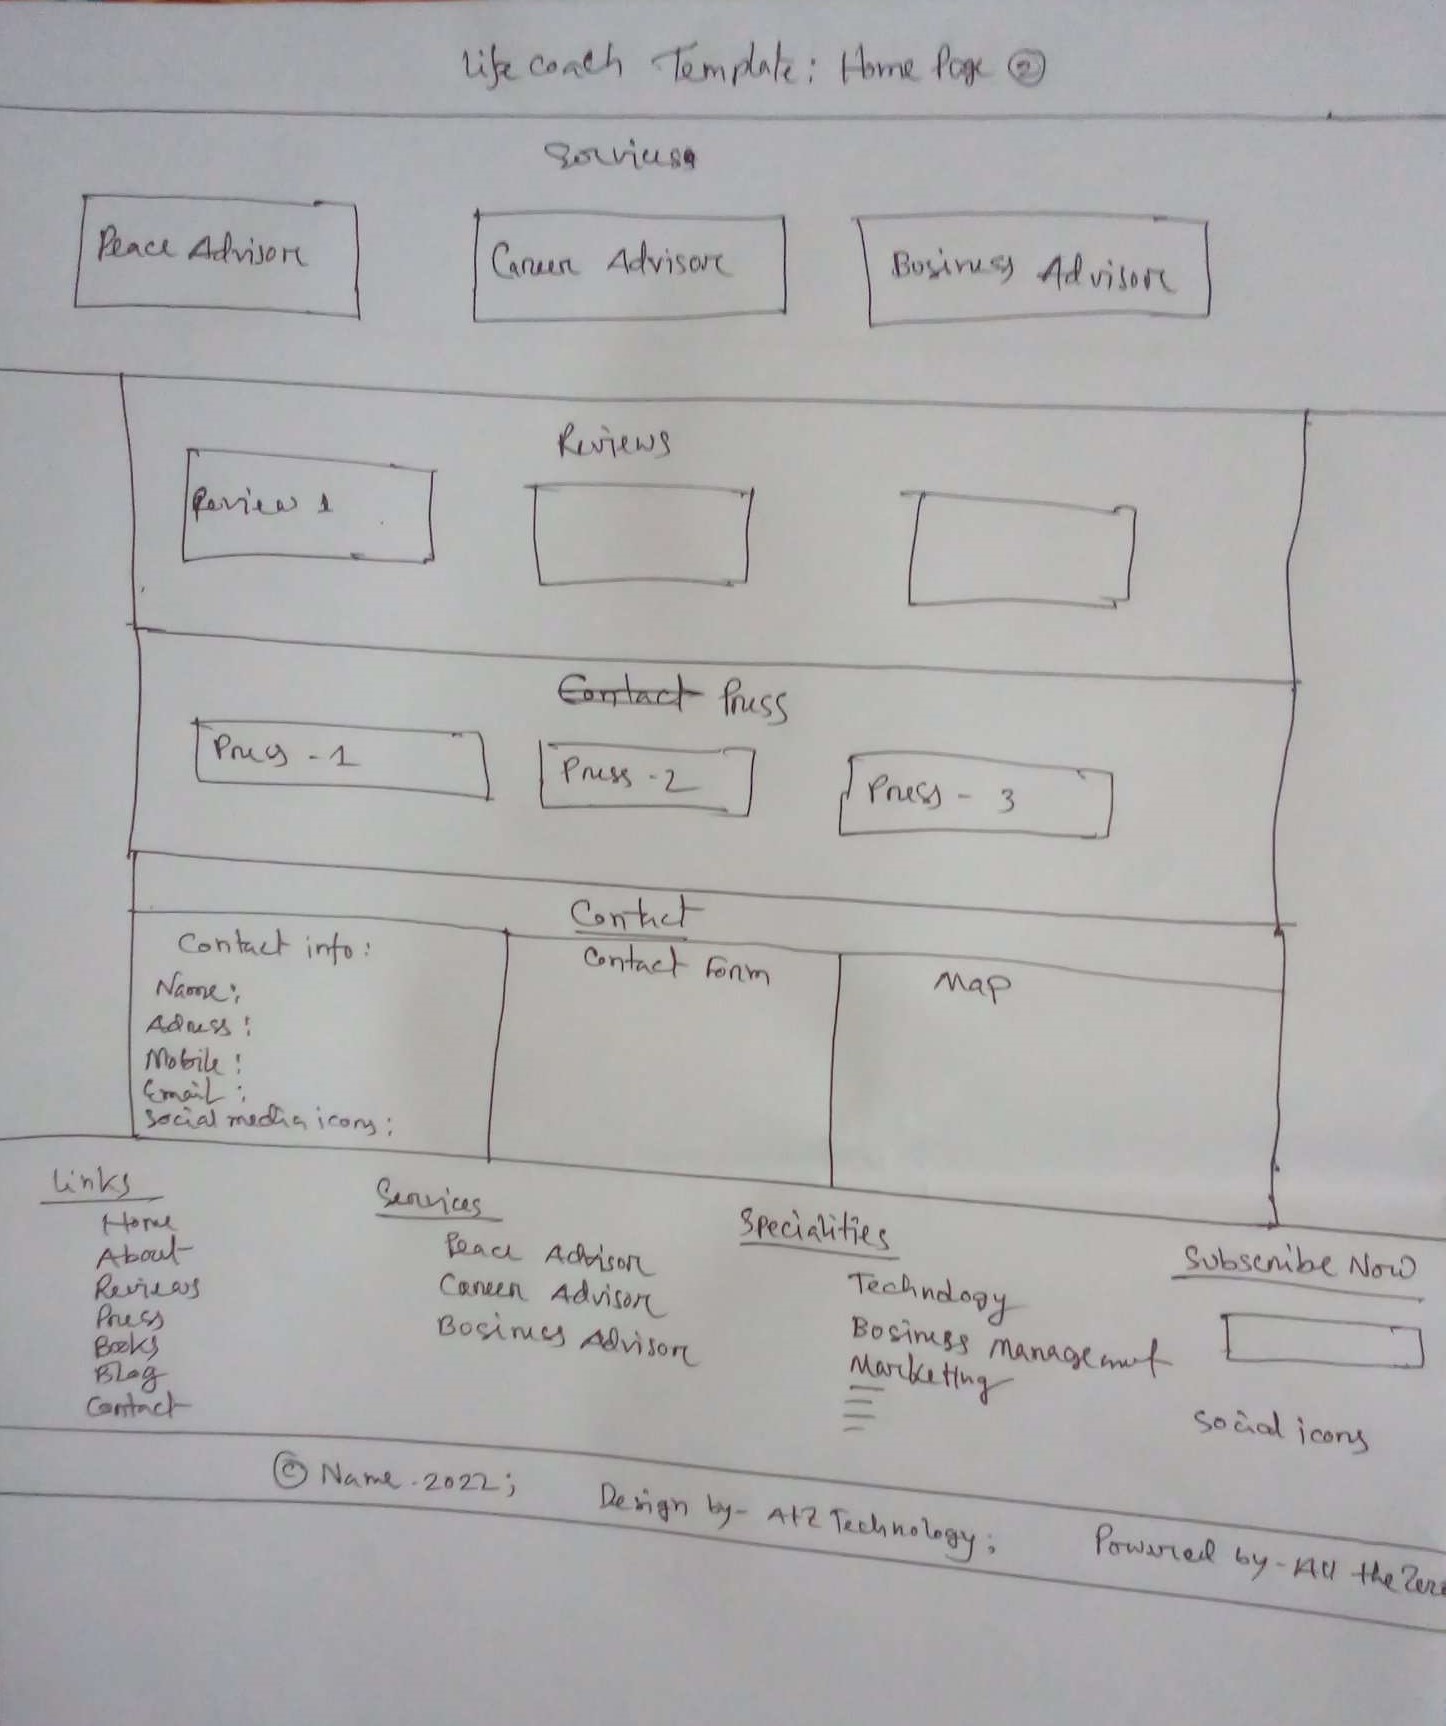 Life coach Template: Home Page ②
Services
Peace Advisor
Career Advisor
Business Advisor
Reviews
Review 1
Contact Press
Press - 1
Press - 2
Press - 3
Contact
Contact info:
Name:
Adress:
Mobile:
Email:
Social media icons:
Contact Form
Map
Links
Home
About
Reviews
Press
Books
Blog
Contact
Services
Peace Advisor
Career Advisor
Bosiness Advisor
Specialities
Technology
Bosiness Management
Marketing
Subscribe Now
Social icons
© Name. 2022; Design by - AtZ Technology; Powered by - All the Zero